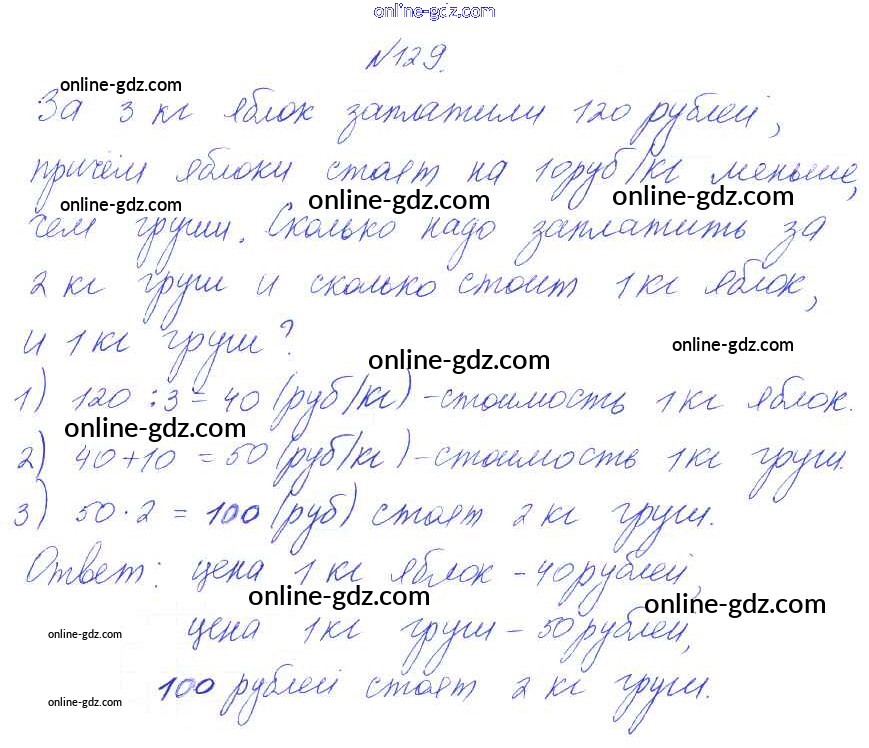 online-gdz.com
№129.
online-gdz.com
За 3 кг яблок заплатили 120 рублей,
причём яблоки стоят на 10руб/кг меньше,
online-gdz.com online-gdz.com online-gdz.com
чем груши. Сколько надо заплатить за
2 кг груш и сколько стоит 1 кг яблок,
и 1 кг груш?
online-gdz.com online-gdz.com
1) 120 : 3 = 40 (руб/кг) - стоимость 1 кг яблок.
online-gdz.com
2) 40 + 10 = 50 (руб/кг) - стоимость 1 кг груш.
3) 50 · 2 = 100 (руб) стоят 2 кг груш.
Ответ: цена 1 кг яблок - 40 рублей,
online-gdz.com online-gdz.com
цена 1 кг груш - 50 рублей,
online-gdz.com
100 рублей стоят 2 кг груш.
online-gdz.com